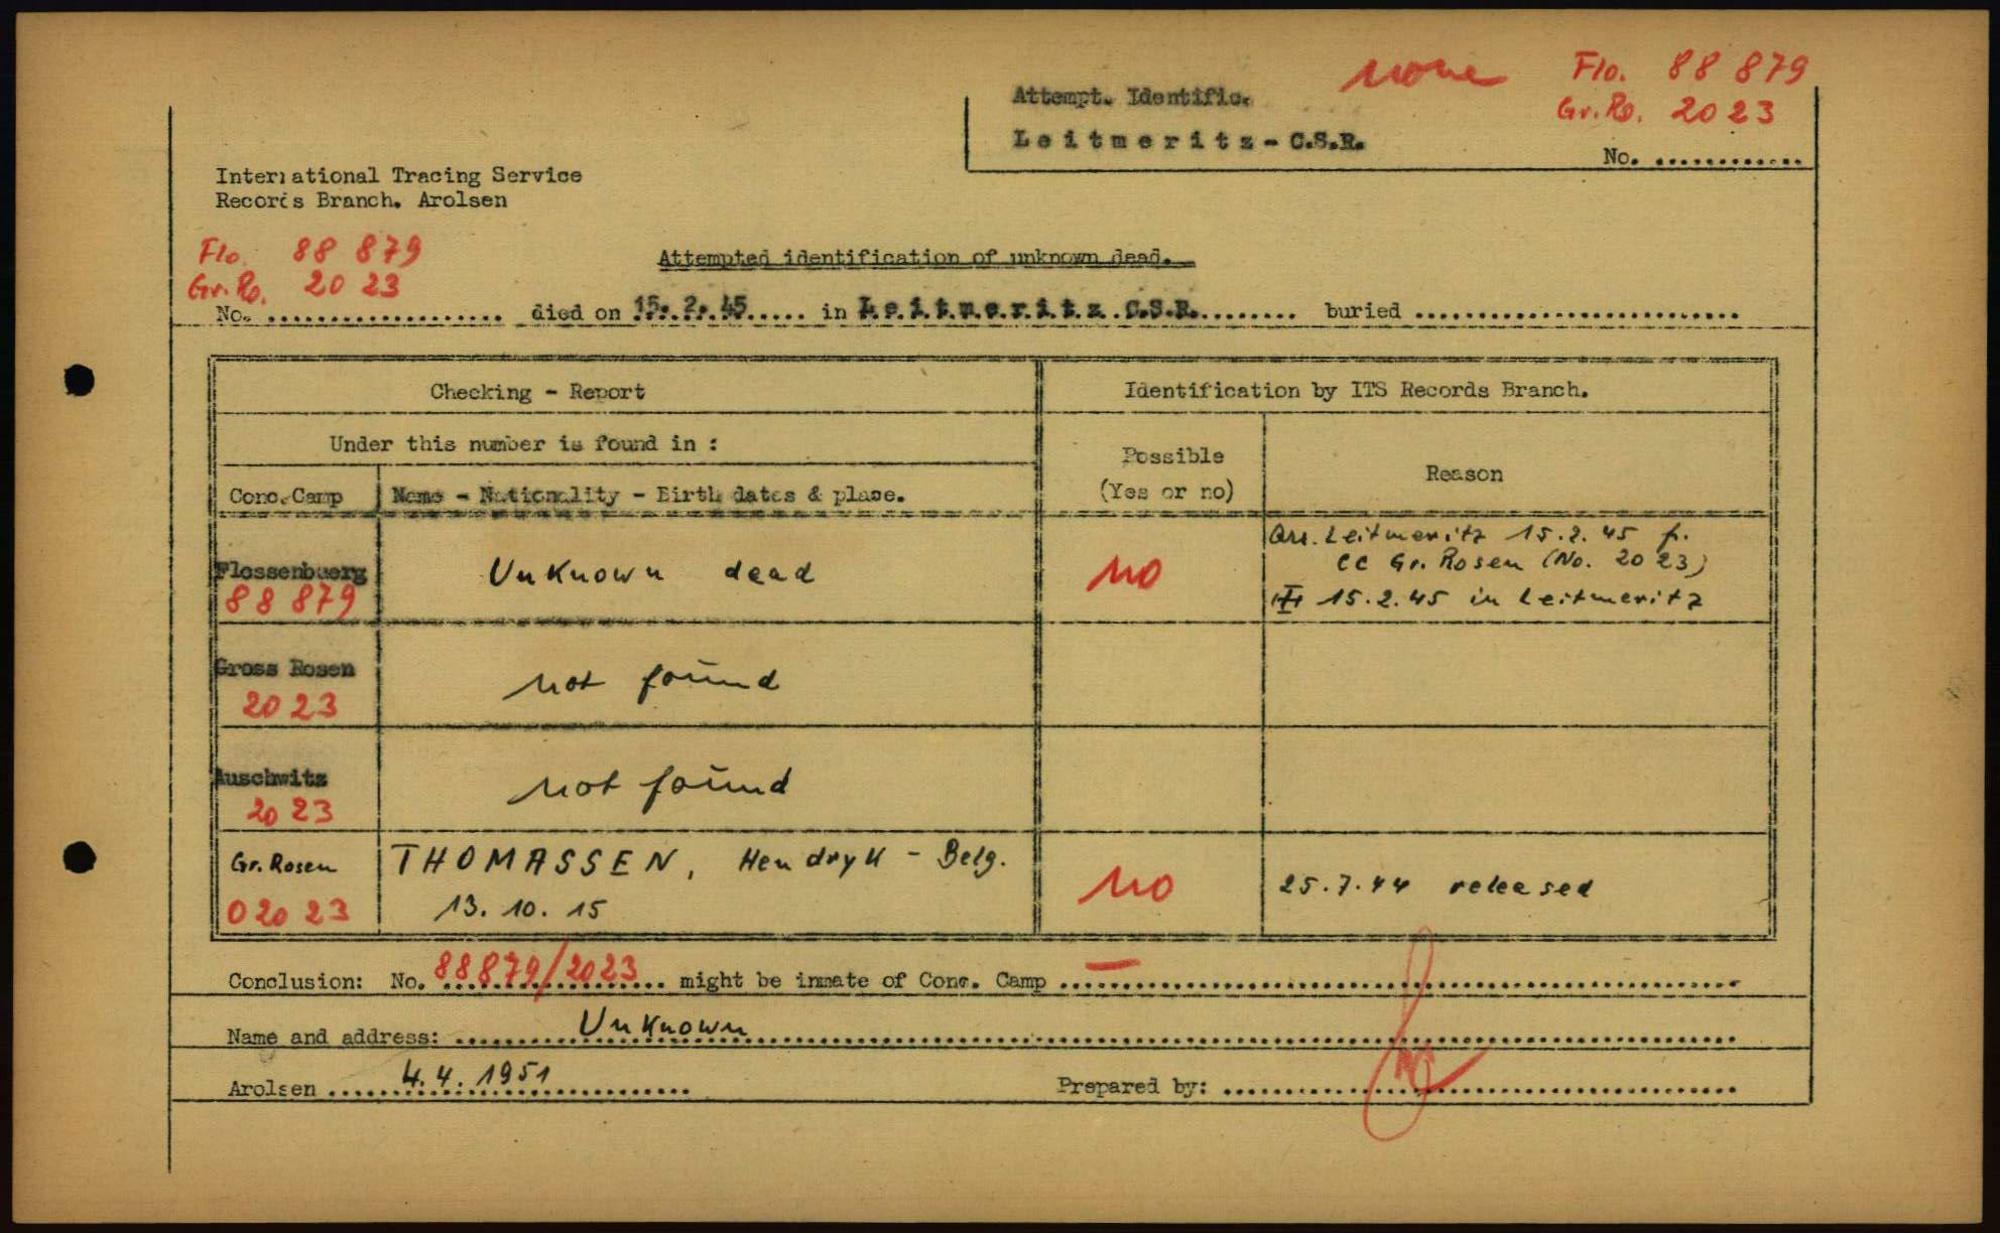 none Flo. 88 879
Attempt. Identific. Gr.Ro. 2023
Leitmeritz - C.S.R.
No. ............
International Tracing Service
Records Branch. Arolsen
Flo. 88 879
Gr.Ro. 2023
Attempted identification of unknown dead.
No. ................... died on 15. 2. 45..... in Leitmeritz C.S.R......... buried .........................
Checking - Report Identification by ITS Records Branch.
Under this number is found in :
Possible
(Yes or no)
Reason
Conc.Camp Name - Nationality - Birth dates & place.
Flossenbuerg
88 879
Unknown dead
no
Arr. Leitmeritz 15.2.45 f.
CC Gr. Rosen (No. 2023)
15.2.45 in Leitmeritz
Gross Rosen
2023
not found
Auschwitz
2023
not found
Gr. Rosen
02023
THOMASSEN, Hendryk - Belg.
13. 10. 15
no
25.7.44 released
Conclusion: No. 88879/2023 might be inmate of Conc. Camp –
Name and address: Unknown
Arolsen 4.4.1951 Prepared by: